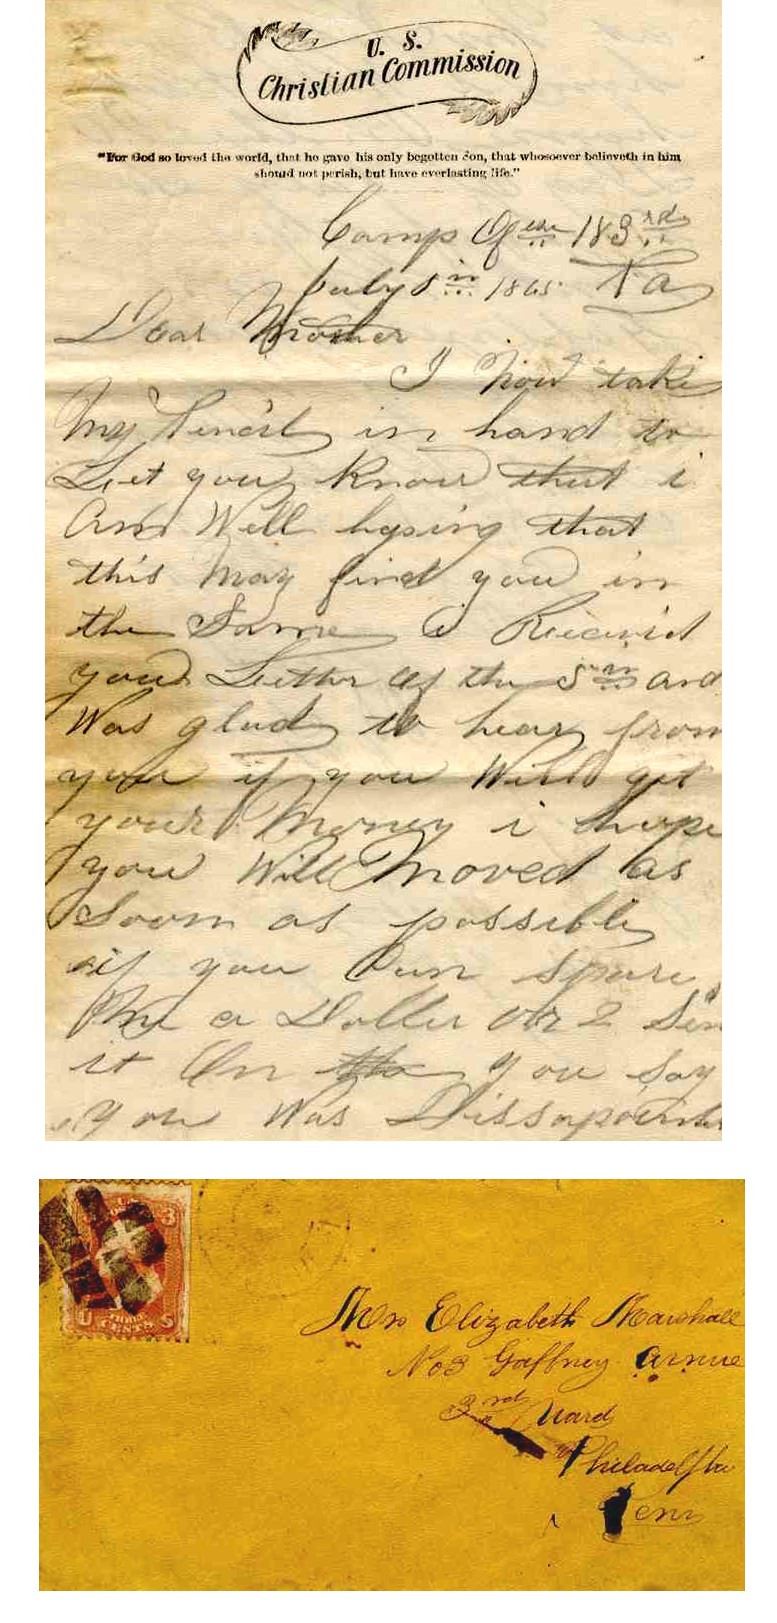 U. S.
Christian Commission
"For God so loved the world, that he gave his only begotten Son, that whosoever believeth in him
should not perish, but have everlasting life."
Camp Of 183rd
July 1865 Pa
Dear Mother
I now take
My Pencil in hand to
Let you Know that i
Am Well hoping that
this May find you in
the Same i Received
your Letter Of the 5th and
Was glad to hear from
you if you Will get
your Money i hope
you Will Moved as
Soon as possible
if you Can Spare
Me a Doller Or 2 Sen
it On you Say
you Was Dissapoint
3
U S
CENTS
Mrs Elizabeth Marshall
No 3 Gaffney Avenue
3rd Ward
Philadelphia
Penn